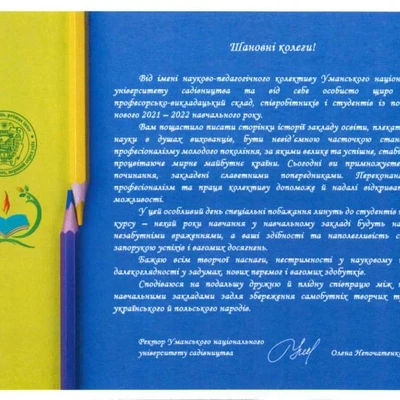 Шановні колеги!
Від імені науково-педагогічного колективу Уманського націо
університету садівництва та від себе особисто щиро
професорсько-викладацький склад, співробітників і студентів із по
нового 2021 – 2022 навчального року.
Вам пощастило писати сторінки історії закладу освіти, плекат
науки в душах вихованців, бути невід’ємною часточкою стано
професіоналізму молодого покоління, за якими велике та успішне, стабі
процвітаюче мирне майбутнє країни. Сьогодні ви примножуєте
починання, закладені славетними попередниками. Перекона
професіоналізм та праця колективу допоможе й надалі відкриват
можливості.
У цей особливий день спеціальні побажання линуть до студентів п
курсу – нехай роки навчання у навчальному закладі будуть на
незабутніми враженнями, а ваші здібності та наполегливість с
запорукою успіхів і вагомих досягнень.
Бажаю всім творчої наснаги, нестримності у науковому п
далекоглядності у задумах, нових перемог і вагомих здобутків.
Сподіваюся на подальшу дружню й плідну співпрацю між н
навчальними закладами задля збереження самобутніх творчих т
українського й польського народів.
Ректор Уманського національного
університету садівництва
Олена Непочатенко